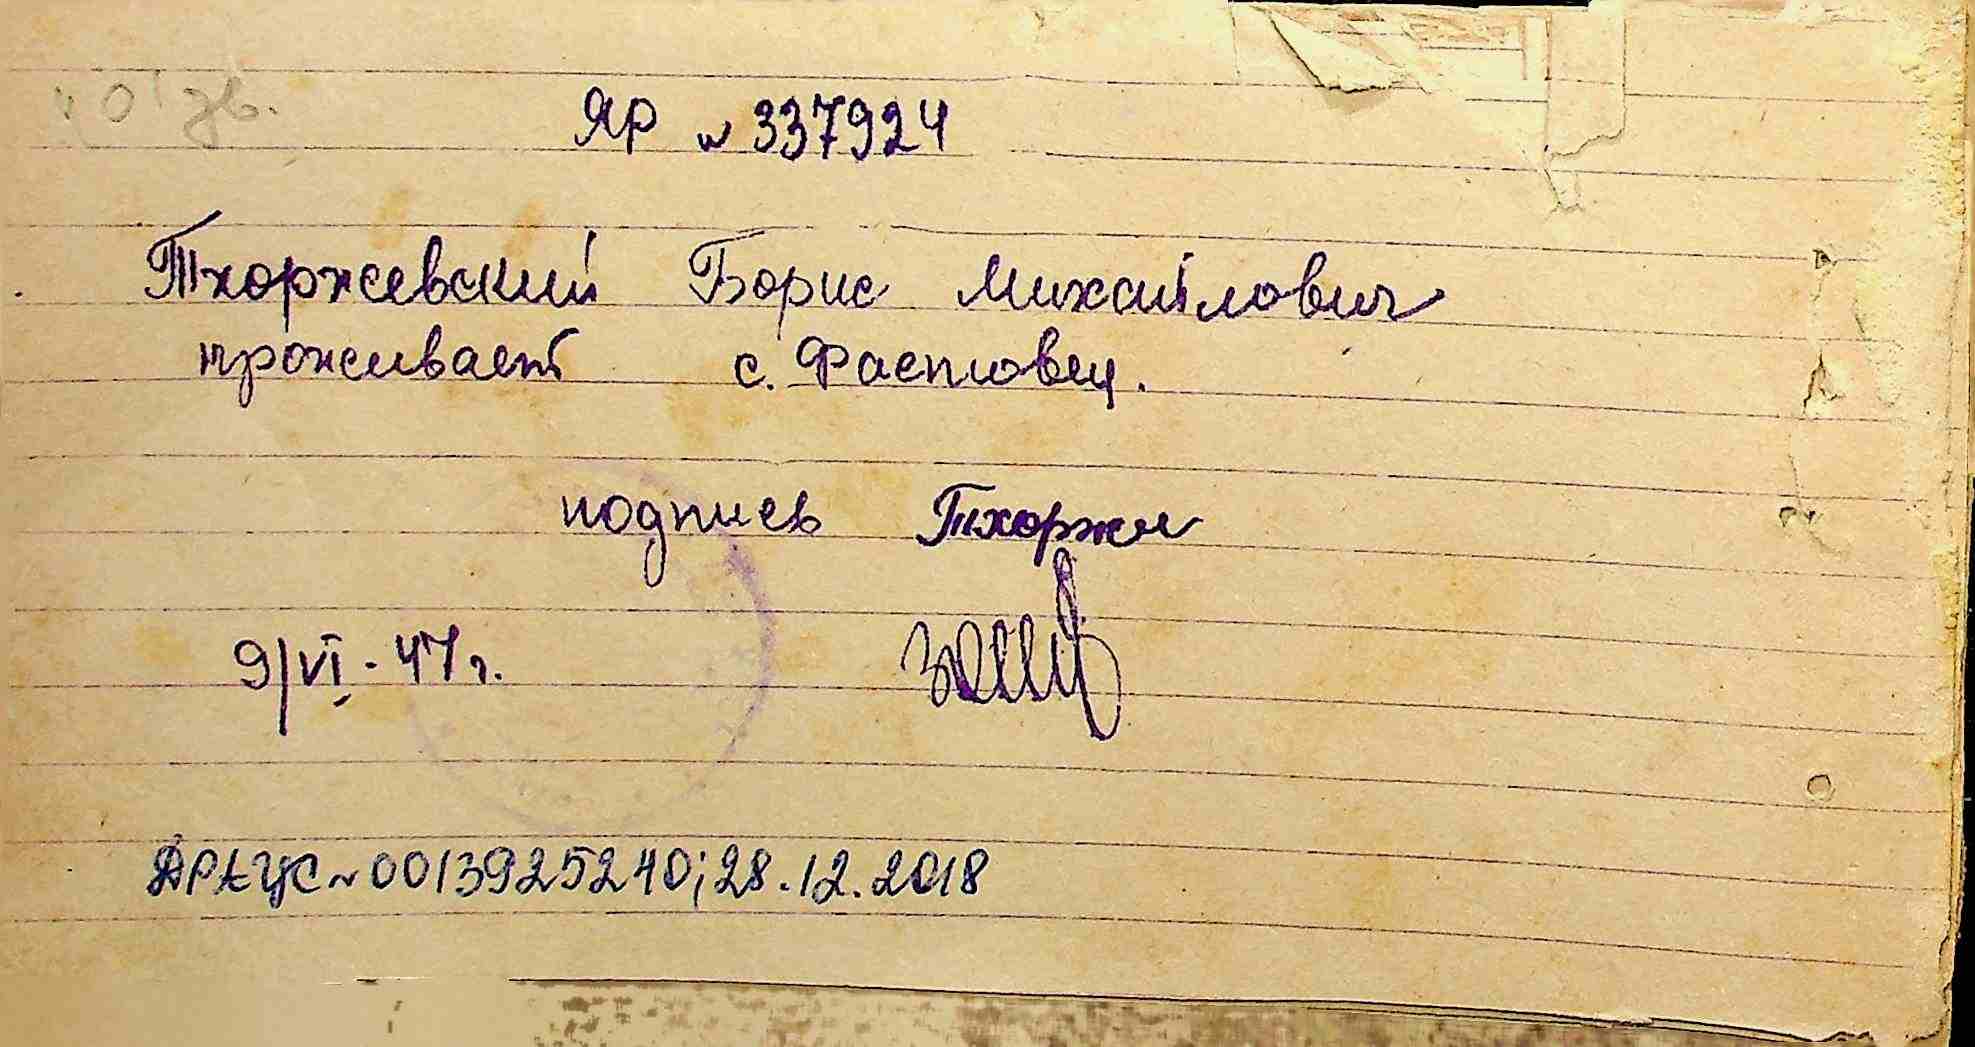 ЯР № 337924
Тхоржевский Борис Михайлович
проживает с. Фастовец.
подпись Тхорже
9/VI - 47 г.
№ 0013925240; 28.12.2018